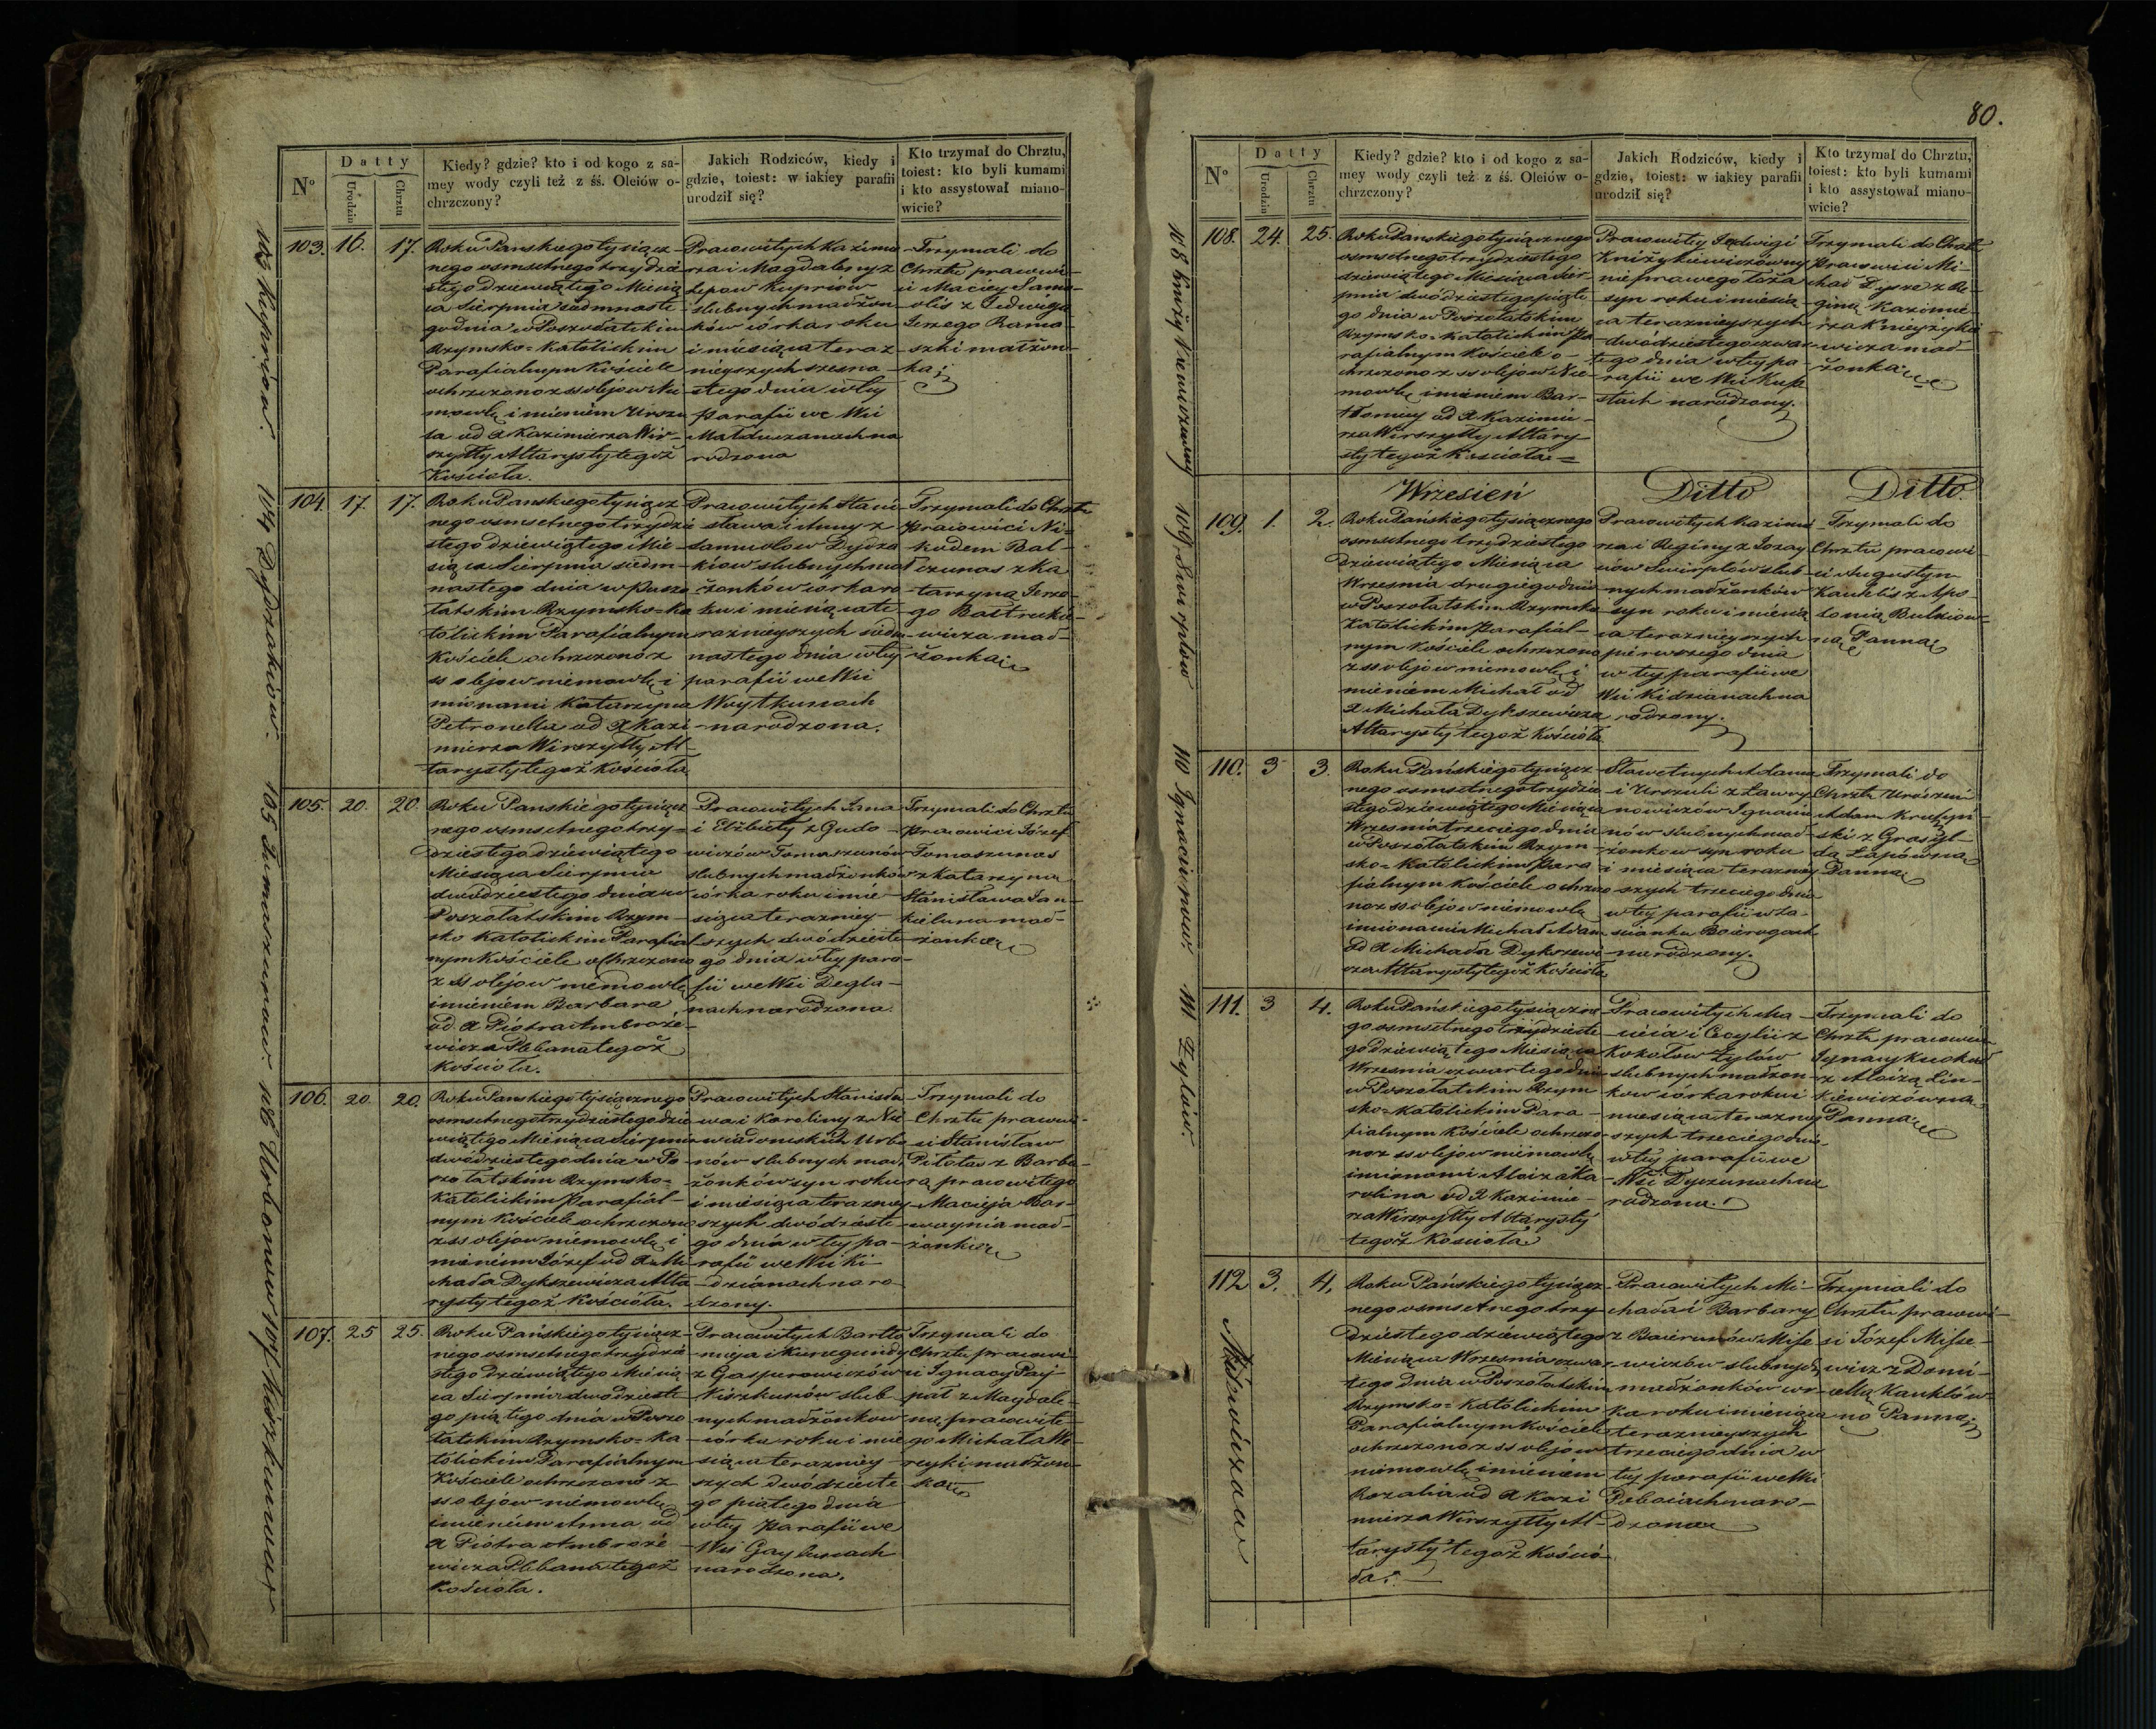 80.
Nº
Datty
Urodzin
Chrztu
Kiedy? gdzie? kto i od kogo z sa-
mey wody czyli też z śś. Oleiów o-
chrzczony?
Jakich Rodziców, kiedy i
gdzie, toiest: w iakiey parafii
urodził się?
Kto trzymał do Chrztu,
toiest: kto byli kumami
i kto assystował miano-
wicie?
103. 16. 17.
Roku Panskiego tysiącz-
nego osmsetnego trzydzie
stego dziewiątego Miesią
ca Sierpnia siedmnaste
go dnia w Poszołatskim
Rzymsko=Katolickim
Parafialnym Kościele
ochrzczono z ss olejow nie
mowlę imieniem Urszu
la od X Kazimierza Wir-
szyłły Altarysty tegoż
Kościoła.
Pracowitych Kazimie
rza i Magdaleny z
slubnych małżon
ków córka roku
i miesiąca teraz
nieyszych szesna
stego dnia w tey
Parafii we Wsi
na
rodzona
Trzymali do
Chrztu pracowi-
ci Maciey
z Jadwigą
Jerzego Rama-
szki małżon-
ką
104. 17. 17.
Roku Panskiego tysiącz
nego osmsetnego trzydzie
stego dziewiątego Mie
siąca Sierpnia siedm-
nastego dnia w Poszo
łatskim Rzymsko=Ka
tolickim Parafialnym
Kościele ochrzczono z
ss olejow niemowlę i
mionami Katarzyna
Petronella od X Kazi
mierza Wirszyłły Al-
tarysty tegoż Kościoła
Pracowitych Stani
sława i Anny z
kiow slubnych mał
żonków córka ro
ku i miesiąca te
raznieyszych siedm
nastego dnia w tey
parafii we Wsi
Woytkunach
narodzona.
Trzymali do Chrztu
Pracowici Ni-
kodem Bal-
czunas z Ka
tarzyną Jerze-
go
wicza mał-
żonką
105. 20. 20.
Roku Panskiego tysiącz
nego osmsetnego trzy=
dziestego dziewiątego
Miesiąca Sierpnia
dwódziestego dnia w
Poszołatskim Rzym-
sko Katolickim Parafial
nym Kościele ochrzczono
z ss olejow niemowlę
imieniem Barbara
od X Piotra Ambroże-
wicza Plebana tegoż
Kościoła.
Pracowitych Jana
i Elżbiety z Gudo-
wiczów Tomaszunów
slubnych małżonków
córka roku i mie-
siąca terazniey-
szych dwódzieste
go dnia w tey para-
fii we Wsi Degla-
nach narodzona.
Trzymali do Chrztu
Pracowici Józef
Tomaszunas
z Katarzyną
Stanisława Jan-
mał-
żonką
106. 20. 20.
Roku Panskiego tysiącznego
osmsetnego trzydziestego dzie
wiątego Miesiąca Sierpnia
dwódziestego dnia w Po
szołatskim Rzymsko-
Katolickim Parafial-
nym Kościele ochrzczono
z ss olejow niemowlę i
mieniem Józef od X Mi
chała Dykszewicza Alta
rysty tegoż Kościoła.
Pracowitych Stanisła
wa i Karoliny z Nie
wiadomskich Urbo
nów slubnych mał
żonków syn roku
i miesiąca terazniey
szych dwódzieste
go dnia w tey pa-
rafii we Wsi Ki
dzianach naro
dzony.
Trzymali do
Chrztu pracowi-
ci Stanisław
Pitotas z Barba-
rą pracowitego
Macieja Bar-
mał-
żonką
107. 25 25.
Roku Pańskiego tysiącz-
nego osmsetnego trzydzie
stego dziewiątego Miesią
ca Sierpnia dwodzieste
go piątego dnia w Poszo
łatskim Rzymsko=Ka
tolickim Parafialnym
Kościele ochrzczono z
ss olejów niemowlę
imieniem Anna od
X Piotra Ambroże
wicza Plebana tegoż
Kościoła.
Pracowitych Bartło
mieja i Kunegundy
z Gasparowiczów
Kiszkunów slub-
nych małżonkow
córka roku i mie
siąca teraznéy-
szych dwódzieste
go piątego dnia
w tey Parafii we
Wsi
narodzona.
Trzymali do
Chrztu pracowi-
ci Ignacy Pay-
z Magdale-
ną pracowite-
go Michała
małżon-
ką
108. 24. 25.
Roku Panskiego tysiącznego
osmsetnego trzydziestego
dziewiątego Miesiąca Sier-
pnia dwódziestego piąte
go dnia w Poszołatskim
Rzymsko=Katolickim Pa
rafialnym Kościele o-
chrzczono z ss olejow Nie
mowlę imieniem Bar-
tłomiey od X Kazimie-
rza Wirszyłły Altary
sty tegoż Kościoła=
Pracowitey Jadwigi
Kniżykiewiczówny
nieprawego łoża
syn roku i miesią-
ca teraznieyszych
dwódziestego czwar-
tego dnia w tey pa-
rafii we Wsi
narodzony.
Trzymali do Chrztu
Pracowici Mi-
chał z Re-
giną Kazimie-
rza
wicza mał-
żonką
Wrzesień
Ditto
Ditto
109. 1. 2.
Roku Pańskiego tysiącznego
osmsetnego trzydziestego
dziewiątego Miesiąca
Wrzesnia drugiego dnia
w Poszołatskim Rzymsko
Katolickim Parafial-
nym Kościele ochrzczono
z ss olejow niemowlę i
mieniem Michał od
X Michała Dykszewicza
Altarysty tegoż Kościoła
Pracowitych Kazimie
rza i Reginy z
slub-
nych małżonków
syn roku i miesią
ca teraznieyszych
pierwszego dnia
w tey parafii we
Wsi Kidzianach na
rodzony.
Trzymali do
Chrztu pracowi-
ci Augustyn
Kauklis z Apo-
lonią
ną Panną
110. 3 3.
Roku Pańskiego tysiącz-
nego osmsetnego trzydzie
stego dziewiątego Miesiąca
Wrzesnia trzeciego dnia
w Poszołatskim Rzym-
sko=Katolickim Para
fialnym Kościele ochrzczo
no z ss olejow niemowlę
imionami Michał Adam
od X Michała Dykszewi-
cza Altarysty tegoż Kościoła
Sławetnych Adama
i Urszuli z Ławry
nowiczów
slubnych mał-
żonkow syn roku
i miesiąca terazniey
szych trzeciego dnia
w tey parafii w Za-
scianku
narodzony.
Trzymali do
Chrztu Urodzeni
Adam
ski z Grasyl-
dą Łapówną
Panną
111. 3 4.
Roku Pańskiego tysiączne
go osmsetnego trzydzieste
go dziewiątego Miesiąca
Wrzesnia czwartego dnia
w Poszołatskim Rzym
sko=Katolickim Para-
fialnym Kościele ochrzczo-
no z ss olejow niemowlę
imionami Aloiza Ka-
rolina od X Kazimie-
rza Wirszyłły Altarysty
tegoż Kościoła
Pracowitych Ma-
cieja i Cecylii z
Kokotow Zylów
slubnych małżon-
kow córka roku i
miesiąca terazniey
szych trzeciego dnia
w tey parafii we
Wsi na
rodzona.
Trzymali do
Chrztu pracowici
Ignacy
z Aloizą Lin-
kiewiczówną
Panną
112 3. 4.
Roku Pańskiego tysiącz-
nego osmsetnego trzy-
dziestego dziewiątego
Miesiąca Wrzesnia czwar-
tego dnia w Poszołatskim
Rzymsko=Katolickim
Parafialnym Kościele
ochrzczono z ss olejow
niemowlę imieniem
Rozalia od X Kazi
mierza Wirszyłły Al-
tarysty tegoż Kościo-
ła.
Pracowitych Mi-
chała i Barbary
z
slubnych
małżonków cór-
ka roku i miesiąca
teraznieyszych
trzeciego dnia w
tey parafii we Wsi
naro-
dzona
Trzymali do
Chrztu pracowi-
ci Józef
wicz z Domi-
cellą Kauklów-
ną Panną